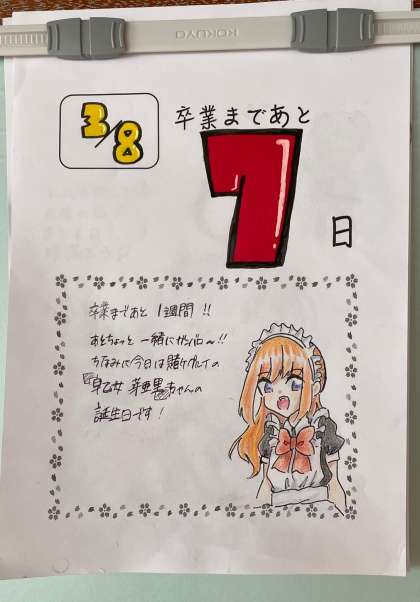 KOKUYO
3/8
卒業まであと
7
日
卒業まであと 1週間!!
あとちょっと 一緒にガンバロ〜!!
ちなみに今日は賭ケグルイの
『早乙女 芽亜里』ちゃんの
誕生日です!